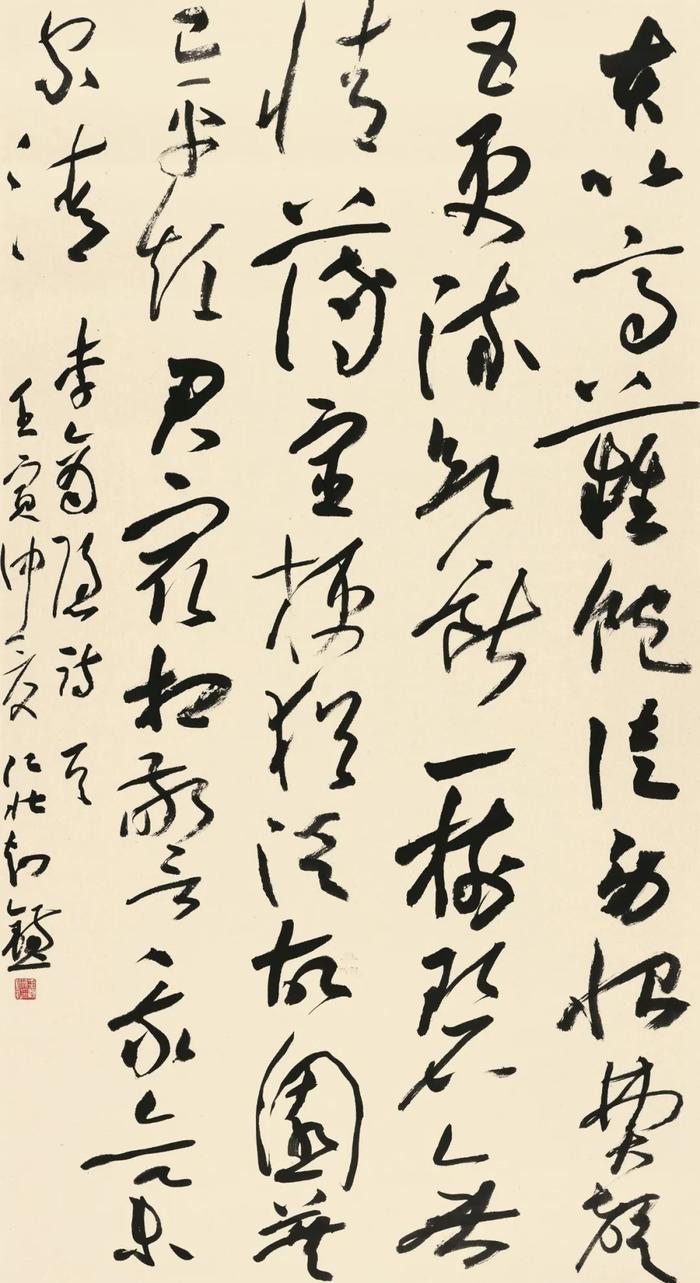 本以高難飽徒勞恨費聲
五更疏欲斷一樹碧無
情薄宦梗猶泛故園蕪
已平煩君最相警我亦舉
家清
李商隱詩
壬寅仲夏